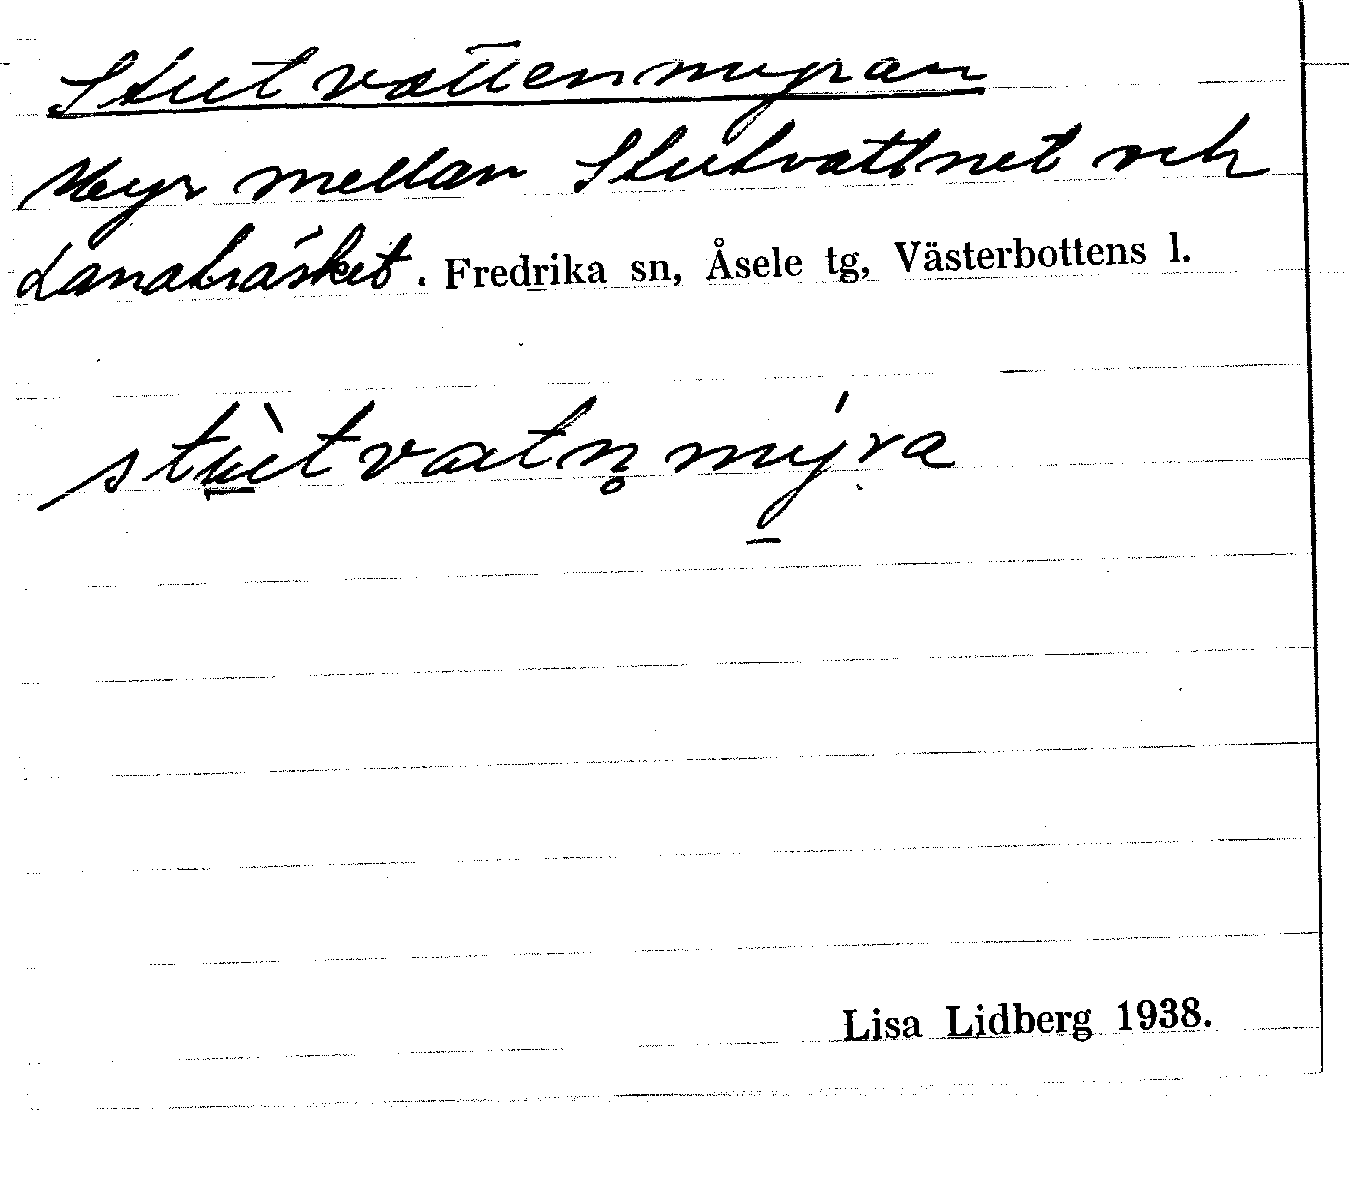 Stutvattenmyran
Myr mellan Stutvattnet och
Lanaträsket. Fredrika sn, Åsele tg, Västerbottens l.
stù̲tvatn̥mý̲ra
Lisa Lidberg 1938.